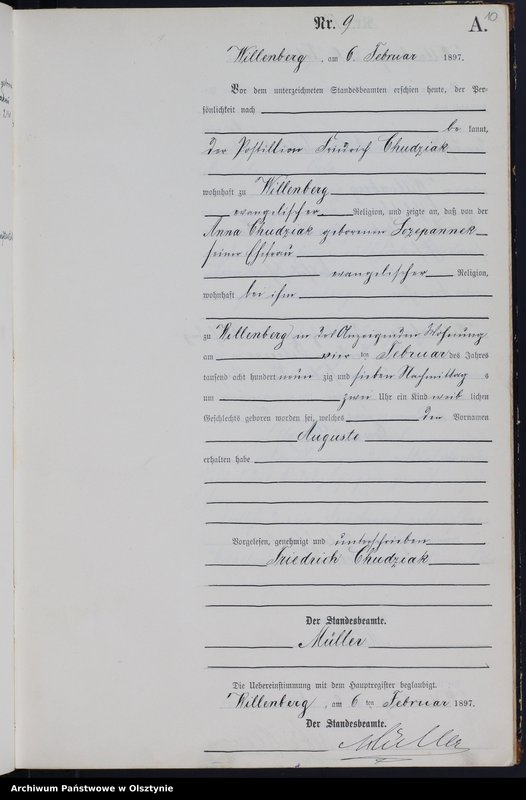 10
Nr. 9 A.
Willenberg, am 6. Februar 1897.
Vor dem unterzeichneten Standesbeamten erschien heute, der Per-
sönlichkeit nach
be kannt,
der Postillion Friedrich Chudziak
wohnhaft zu Willenberg
evangelischer Religion, und zeigte an, daß von der
Anna Chudziak geborenen Sczepannek
seiner Ehefrau
evangelischer Religion,
wohnhaft bei ihm
zu Willenberg in des Anzeigenden Wohnung
am vier ten Februar des Jahres
tausend acht hundert neun zig und sieben Nachmittag s
um zwei Uhr ein Kind weib lichen
Geschlechts geboren worden sei, welches den Vornamen
Auguste
erhalten habe
Vorgelesen, genehmigt und unterschrieben
Friedrich Chudziak
Der Standesbeamte.
Müller
Die Uebereinstimmung mit dem Hauptregister beglaubigt.
Willenberg, am 6 ten Februar 1897.
Der Standesbeamte.
Müller
Archiwum Państwowe w Olsztynie